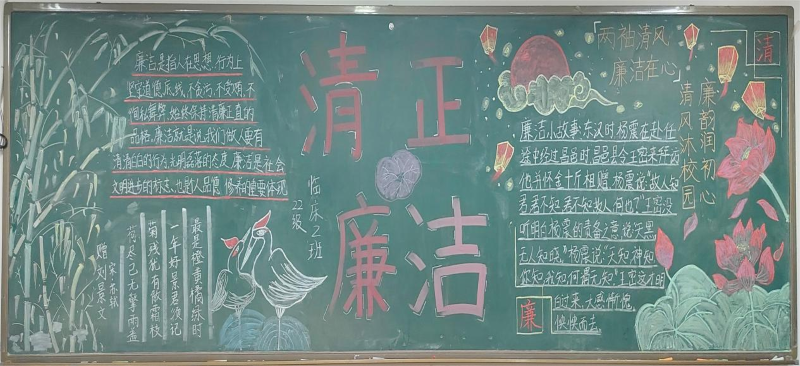 廉洁是指人在思想、行为上
坚守道德底线,不贪污、不受贿、不
徇私舞弊,始终保持清廉正直的
品格。廉洁就是说,我们做人要有
清清白白的行为,光明磊落的态度。廉洁是社会
文明进步的标志,也是人品质修养的重要体现
赠刘景文
宋 苏轼
荷尽已无擎雨盖
菊残犹有傲霜枝
一年好景君须记
最是橙黄橘绿时
清正
廉洁
22级
临床2班
「两袖清风
廉洁在心」
清
廉韵润初心
清风沐校园
廉洁小故事:东汉时杨震在赴任
途中经过昌邑时,昌邑县令王密来拜访
他,并怀金十斤相赠。杨震说:"故人知
君,君不知故人,何也?"王密没
听明白杨震的责备之意,说:"天黑,
无人知晓。"杨震说:"天知,神知,
你知,我知,何谓无知?"王密这才明
白过来,大感惭愧,
怏怏而去。
廉